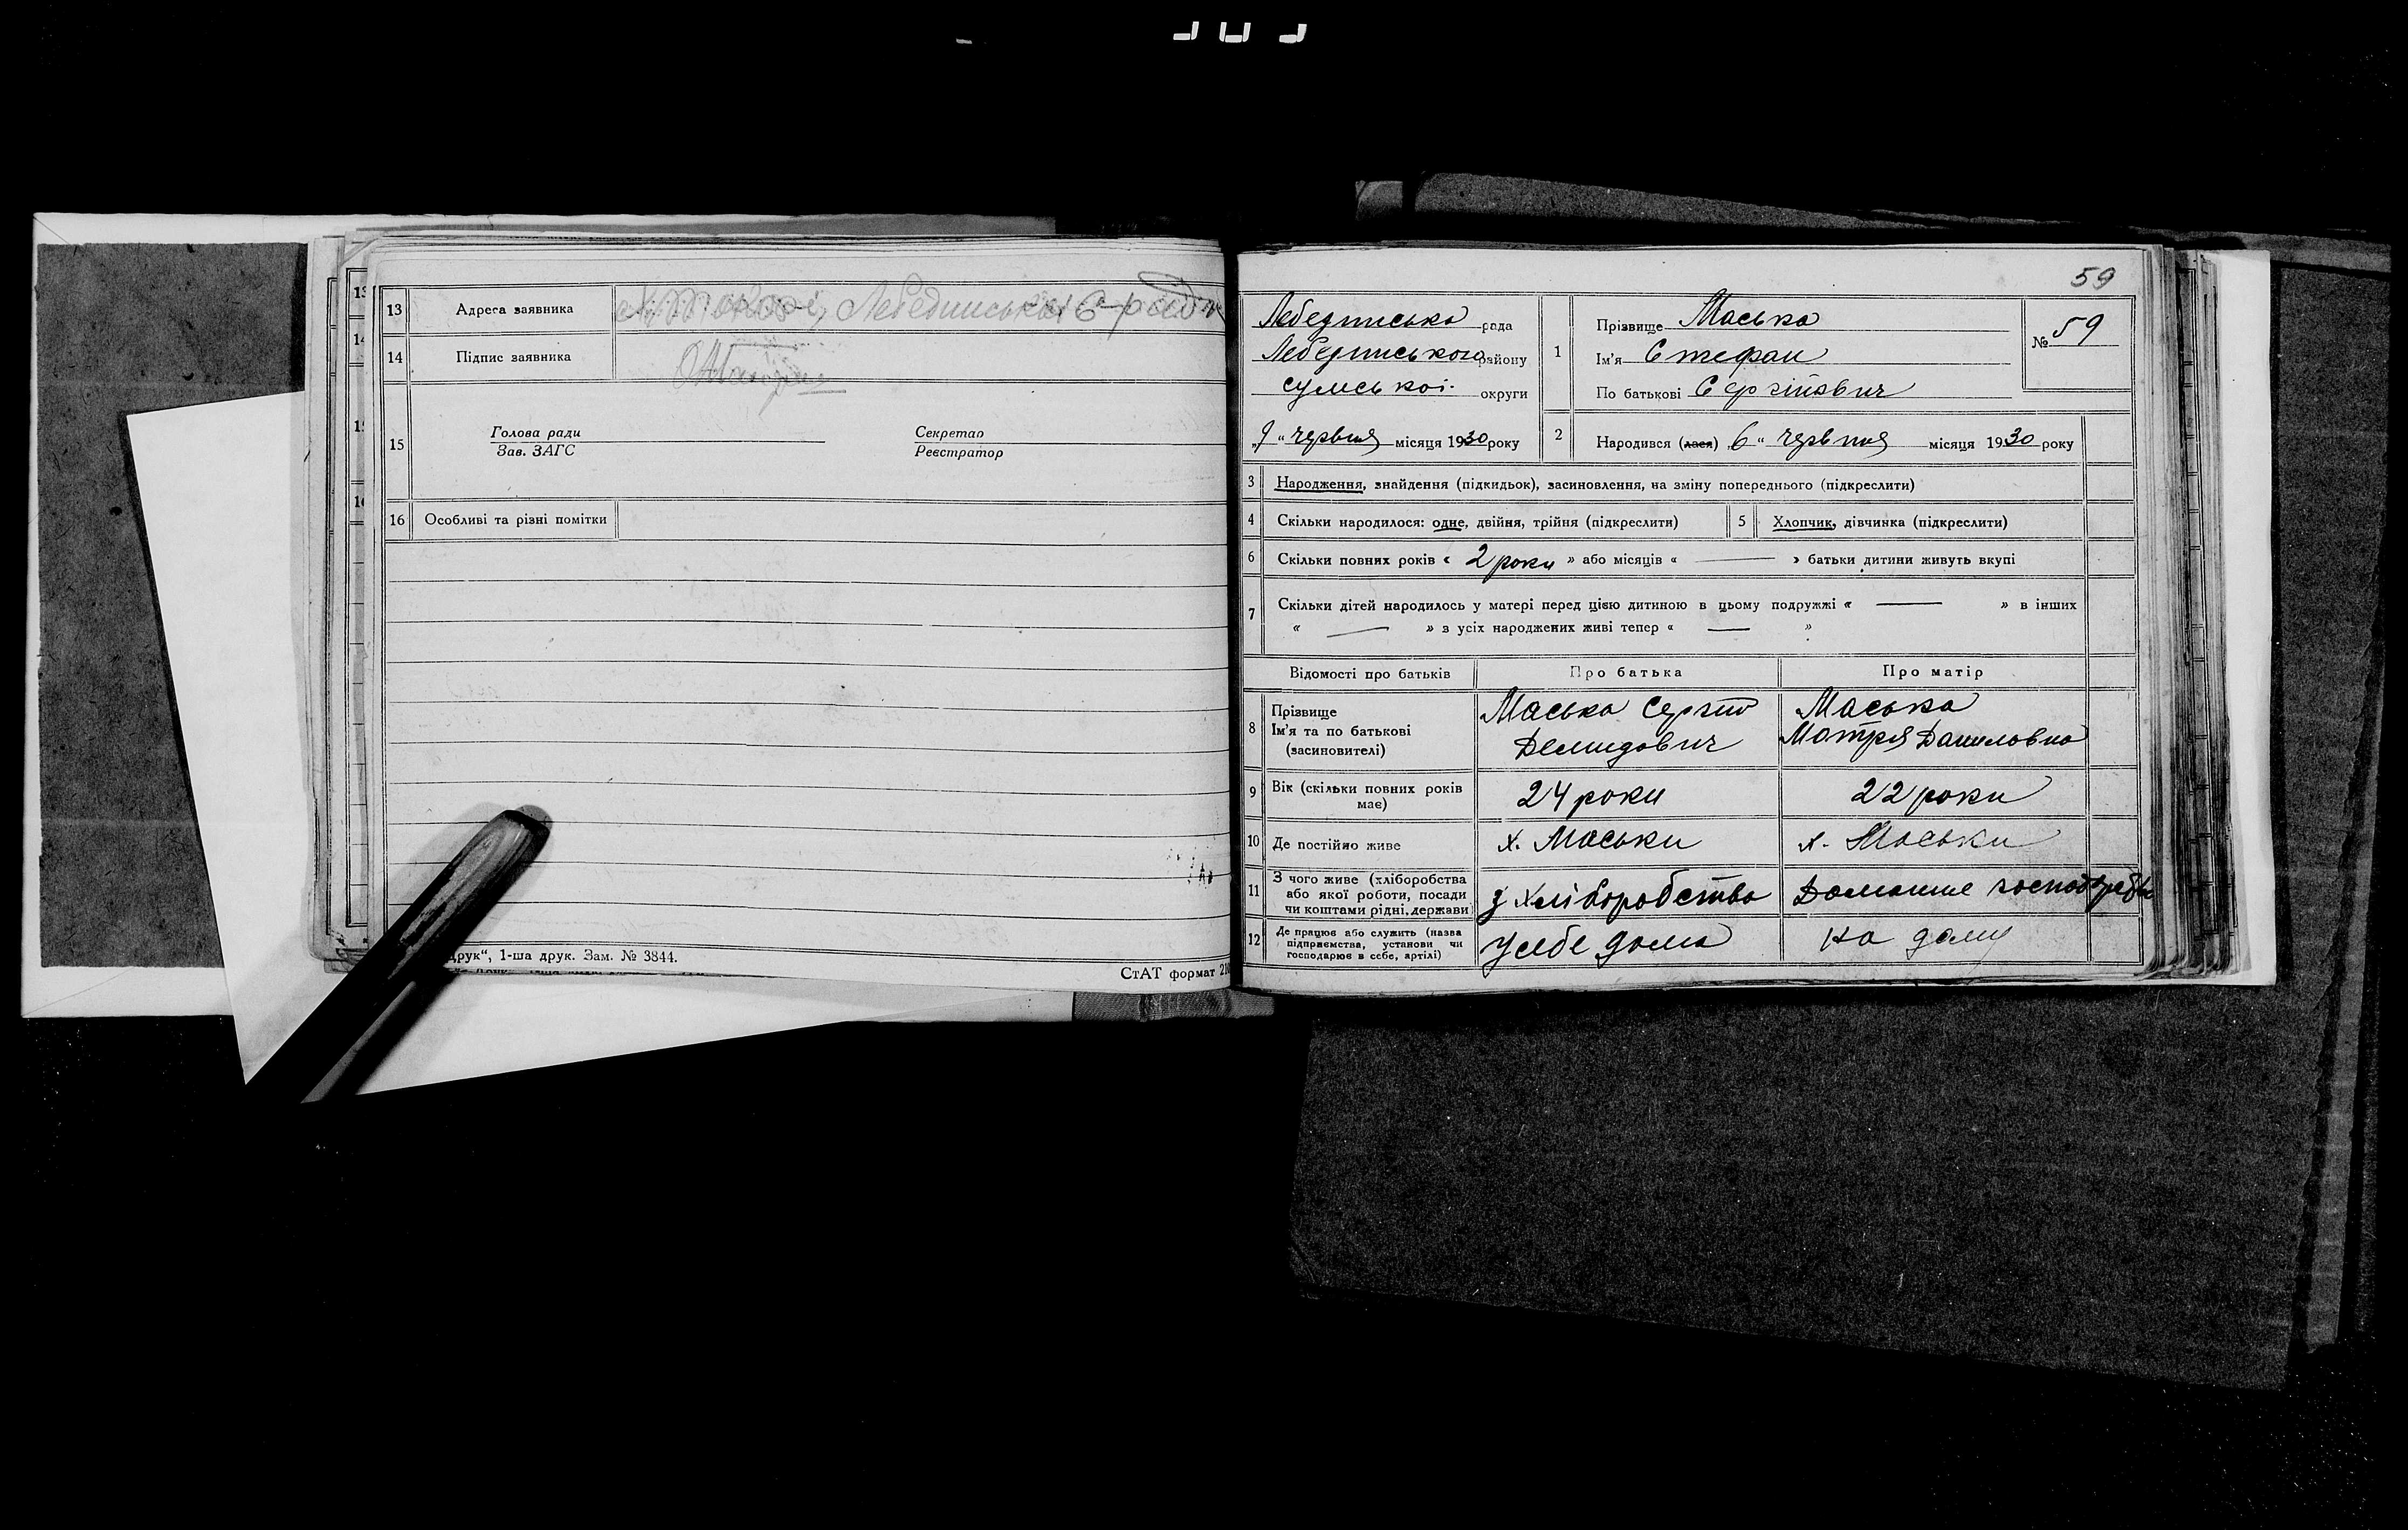 13 Адреса заявника Лебединська с-рада
14 Підпис заявника
15 Голова ради Секретар
Зав. ЗАГС Реєстратор
16 Особливі та різні помітки
друк“, 1-ша друк. Зам. № 3844.
СтАТ формат 210
59
Лебединська рада
Лебединського району
Сумської округи
„9“ червня місяця 1930 року
1 Прізвище Маська
Ім'я Стефан
По батькові Сергійович
№ 59
2 Народився (лася) „6“ червня місяця 1930 року
3 Народження, знайдення (підкидьок), засиновлення, на зміну попереднього (підкреслити)
4 Скільки народилося: одне, двійня, трійня (підкреслити) 5 Хлопчик, дівчинка (підкреслити)
6 Скільки повних років « 2 роки » або місяців « — » батьки дитини живуть вкупі
7 Скільки дітей народилось у матері перед цією дитиною в цьому подружжі « — » в інших
« — » з усіх народжених живі тепер « — »
Відомості про батьків Про батька Про матір
8 Прізвище
Ім'я та по батькові
(засиновителі)
Маська Сергій
Демидович
Маська
Мотря Даниловна
9 Вік (скільки повних років
має)
24 роки 22 роки
10 Де постійно живе х. Маськи х. Маськи
11 З чого живе (хліборобства
або якої роботи, посади
чи коштами рідні, держави
з хліборобства Домашнє
12 Де працює або служить (назва
підприємства, установи чи
господарює в себе, артілі)
У себе дома На дому